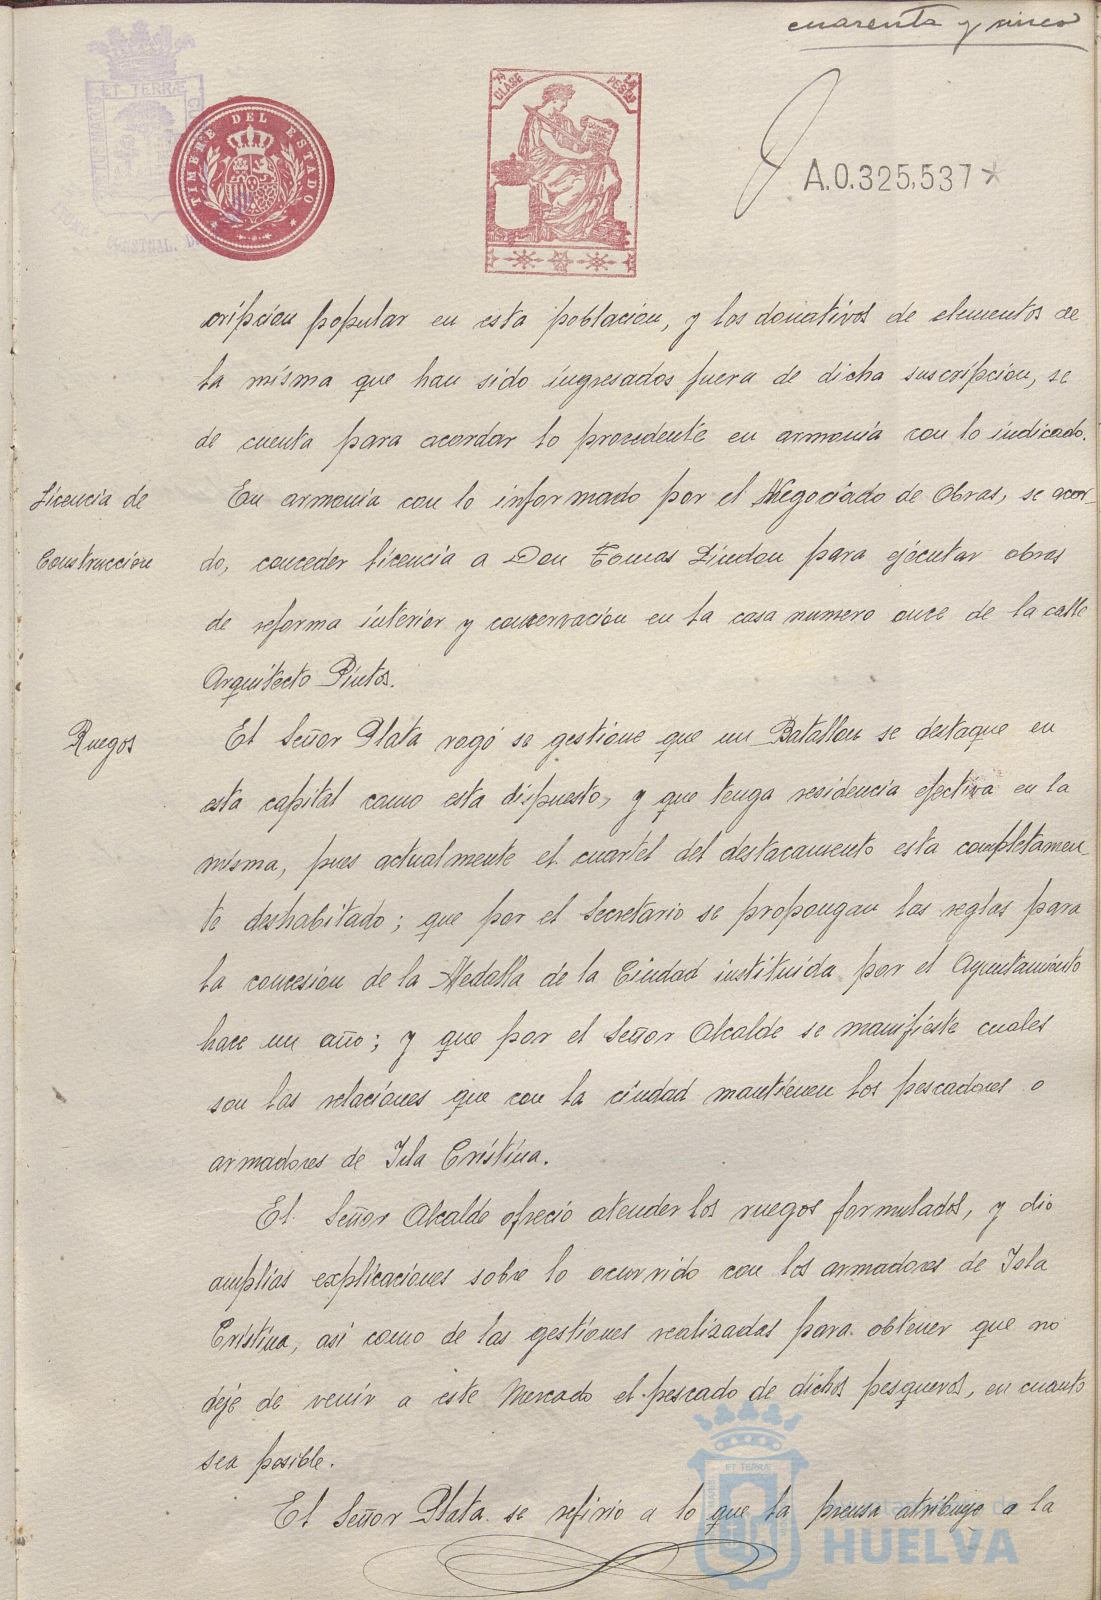 cuarenta y cinco
TIMBRE DEL ESTADO
7ª CLASE
PESETAS
A.0.325,537*
cripcion popular en esta poblacion, y los donativos de elementos de
la misma que han sido ingresados fuera de dicha suscripcion, se
de cuenta para acordar lo procedente en armonia con lo indicado.
Licencia de
Construccion
En armonia con lo informado por el Negociado de Obras, se acor-
do, conceder licencia a Don Tomas Lindon para ejecutar obras
de reforma interior y conservacion en la casa numero once de la calle
Arquitecto Pintos.
Ruegos
El Señor Plata rogó se gestione que un Batallon se destaque en
esta capital como esta dispuesto, y que tenga residencia efectiva en la
misma, pues actualmente el cuartel del destacamento esta completamen-
te deshabitado; que por el Secretario se propongan las reglas para
la concesion de la Medalla de la Ciudad instituida por el Ayuntamiento
hace un año; y que por el Señor Alcalde se manifieste cuales
son las relaciones que con la ciudad mantienen los pescadores o
armadores de Isla Cristina.
El Señor Alcalde ofrecio atender los ruegos formulados, y dio
amplias explicaciones sobre lo ocurrido con los armadores de Isla
Cristina, asi como de las gestiones realizadas para obtener que no
deje de venir a este Mercado el pescado de dichos pesqueros, en cuanto
sea posible.
El Señor Plata se refirio a lo que la prensa atribuye a la
HUELVA